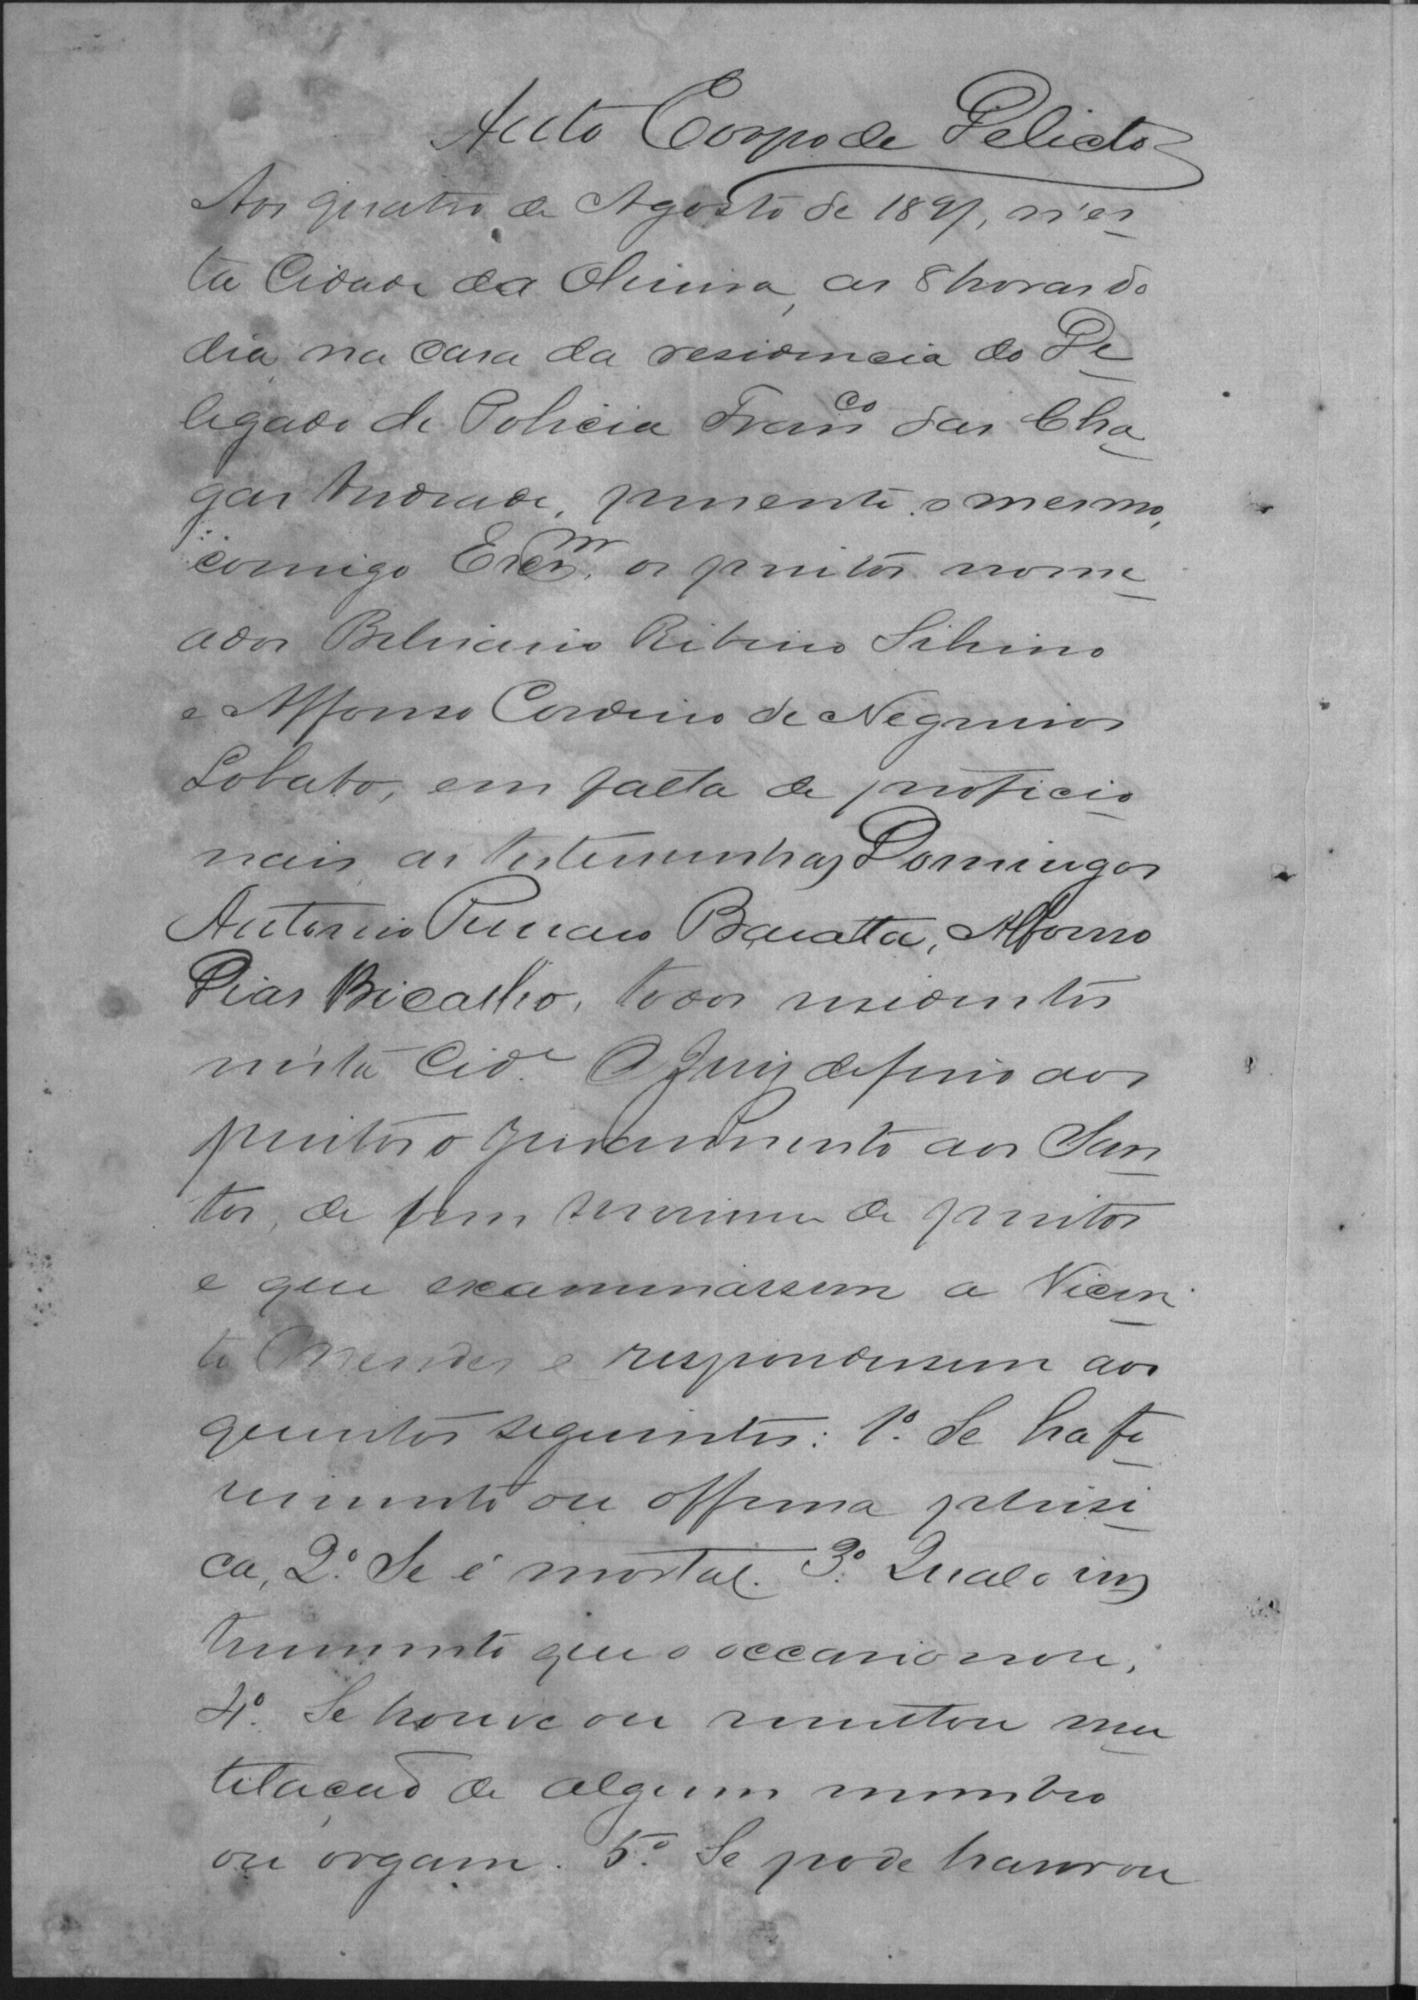 Auto Corpo de Delicto
Aos quatro de Agosto de 1897, n'es
ta Cidade da Oliveira, as 8 horas do
dia na casa da residencia do De
legado de Policia Franco das Cha
gas Andrade, presente o mesmo,
comigo Escm. os peritos nome
ados Belisario Ribeiro Silvino
e Affonso Cordeiro de Negreiros
Lobato, em falta de proficio
nais as testemunhas Domingos
Antonio Baratta, Affonso
Dias Bicalho, todos residentes
n'esta Cide. O Juiz deferio aos
peritos o juramento aos San
tos, de bem servirem de peritos
e que examinassem a Vicen
te Mendes e respondessem aos
quesitos seguintes: 1º Se ha fe
rimento ou offensa phisi
ca, 2º Se é mortal. 3º Qual o ins
trumento que o occasionou,
4º. Se houve ou resultou mu
tilação de algum membro
ou orgam. 5º Se pode haver ou